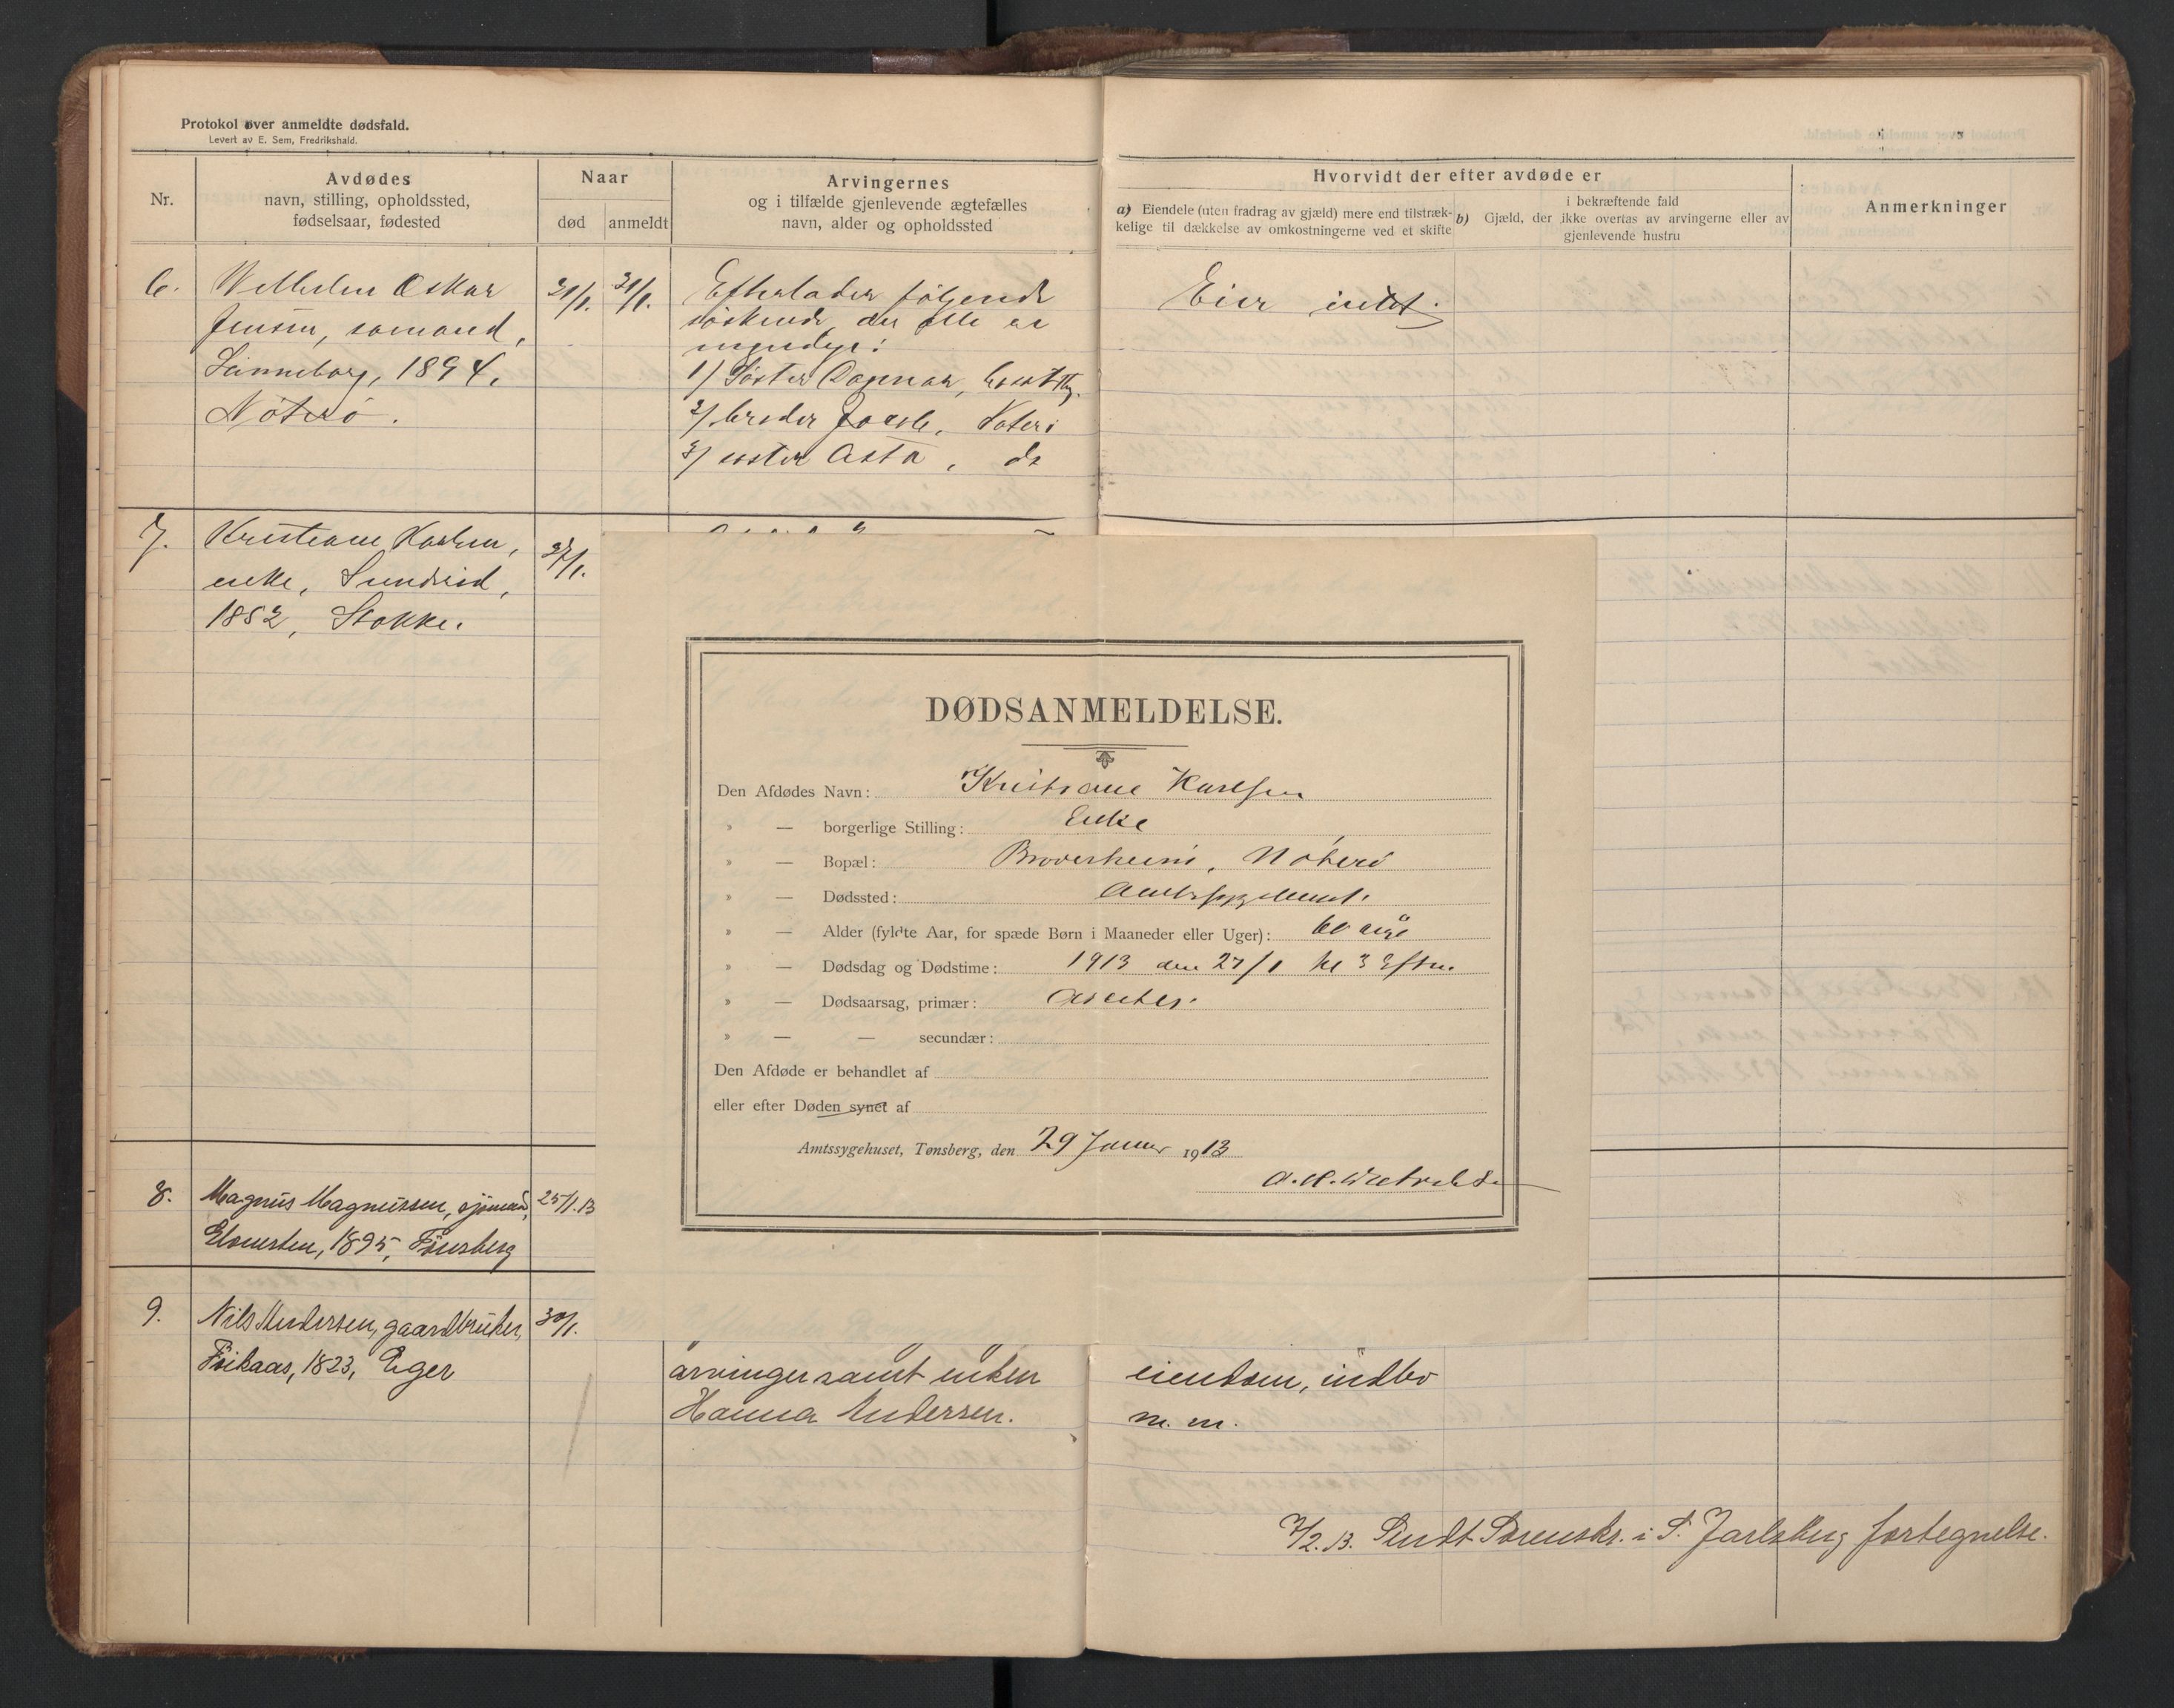 Protokol over anmeldte dødsfald.
Levert av E. Sem, Fredrikshald.
Nr.
Avdødes
navn, stilling, opholdssted,
fødselsaar, fødested
Naar
død
anmeldt
Arvingernes
og i tilfælde gjenlevende ægtefælles
navn, alder og opholdssted
Hvorvidt der efter avdøde er
a) Eiendele (uten fradrag av gjæld) mere end tilstræk-
kelige til dækkelse av omkostningerne ved et skifte
b) Gjæld, der
i bekræftende fald
ikke overtas av arvingerne eller av
gjenlevende hustru
Anmerkninger
6.
Oskar
Jensen, sømand,
1894,
Nøterø.
21/1.
31/1.
Efterlader følgende
søskende, der alle er
1/ Søster Dagmar,
2/ broder
3/ søster Asta, do
Eier intet.
7.
Kristiane Karlsen,
enke,
1852, Stokke.
27/1.
DØDSANMELDELSE.
Den Afdødes Navn: Kristiane Karlsen
» — borgerlige Stilling: Enke
» — Bopæl: Nøterø
» — Dødssted: Amtssygehuset.
» — Alder (fyldte Aar, for spæde Børn i Maaneder eller Uger): 60 aar
» — Dødsdag og Dødstime: 1913 den 27/1 kl 3 Eftm.
» — Dødsaarsag, primær: Ascites.
» — — secundær:
Den Afdøde er behandlet af
eller efter Døden synet af
Amtssygehuset, Tønsberg, den 29 Januar 1913
8.
Magnus Magnussen, sjømand,
1895, Tønsberg
25/1.13
9.
Nils Andersen, gaardbruker,
1823, Eger
30/1.
arvinger samt enken
Hanna Andersen.
eiendom, indbo
m. m.
7/2.13. Sendt Sorenskr. i S. Jarlsberg fortegnelse.